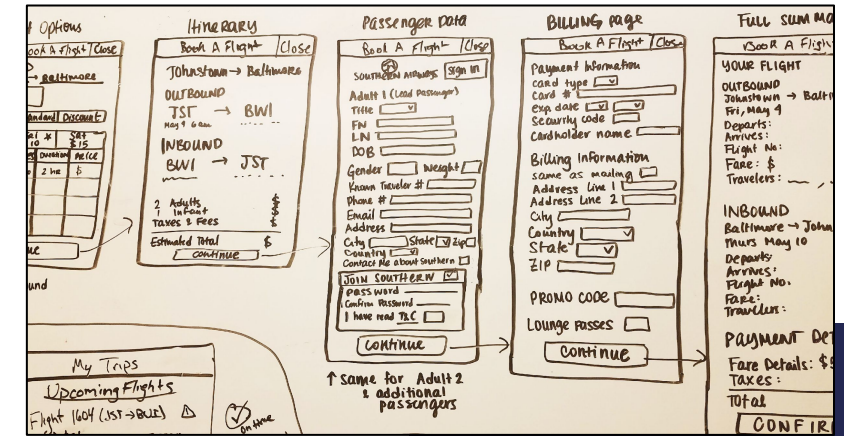 Options
Book A Flight Close
Baltimore
Standard Discount
Sat
$15
Duration Price
2 hr $
Itinerary
Book A Flight Close
Johnstown → Baltimore
OUTBOUND
JST → BWI
May 4 6am
INBOUND
BWI → JST
2 Adults $
1 Infant $
Taxes & Fees $
Estimated Total $
Continue
Passenger Data
Book A Flight Close
SOUTHERN AIRWAYS Sign in
Adult 1 (Lead Passenger)
Title
FN
LN
DOB
Gender Weight
Known Traveler #
Phone #
Email
Address
City State Zip
Country
Contact Me about Southern
JOIN SOUTHERN
Password
Confirm Password
I have read T&C
Continue
↑ Same for Adult 2
& additional
passengers
BILLING page
Book A Flight Close
Payment Information
card type
Card #
exp date
Security code
Cardholder name
Billing Information
same as mailing
Address Line 1
Address Line 2
City
Country
State
ZIP
PROMO CODE
Lounge passes
Continue
FULL SUMMA
Book A Fligh
YOUR FLIGHT
OUTBOUND
Johnstown → Balti
Fri, May 4
Departs:
Arrives:
Flight No:
Fare: $
Travelers:
INBOUND
Baltimore → John
Thurs May 10
Departs:
Arrives:
Flight No.
Fare:
Travelers:
PAYMENT DET
Fare Details: $5
Taxes:
Total
CONFIR
My Trips
Upcoming Flights
Flight 1604 (JST → BWI)
on time